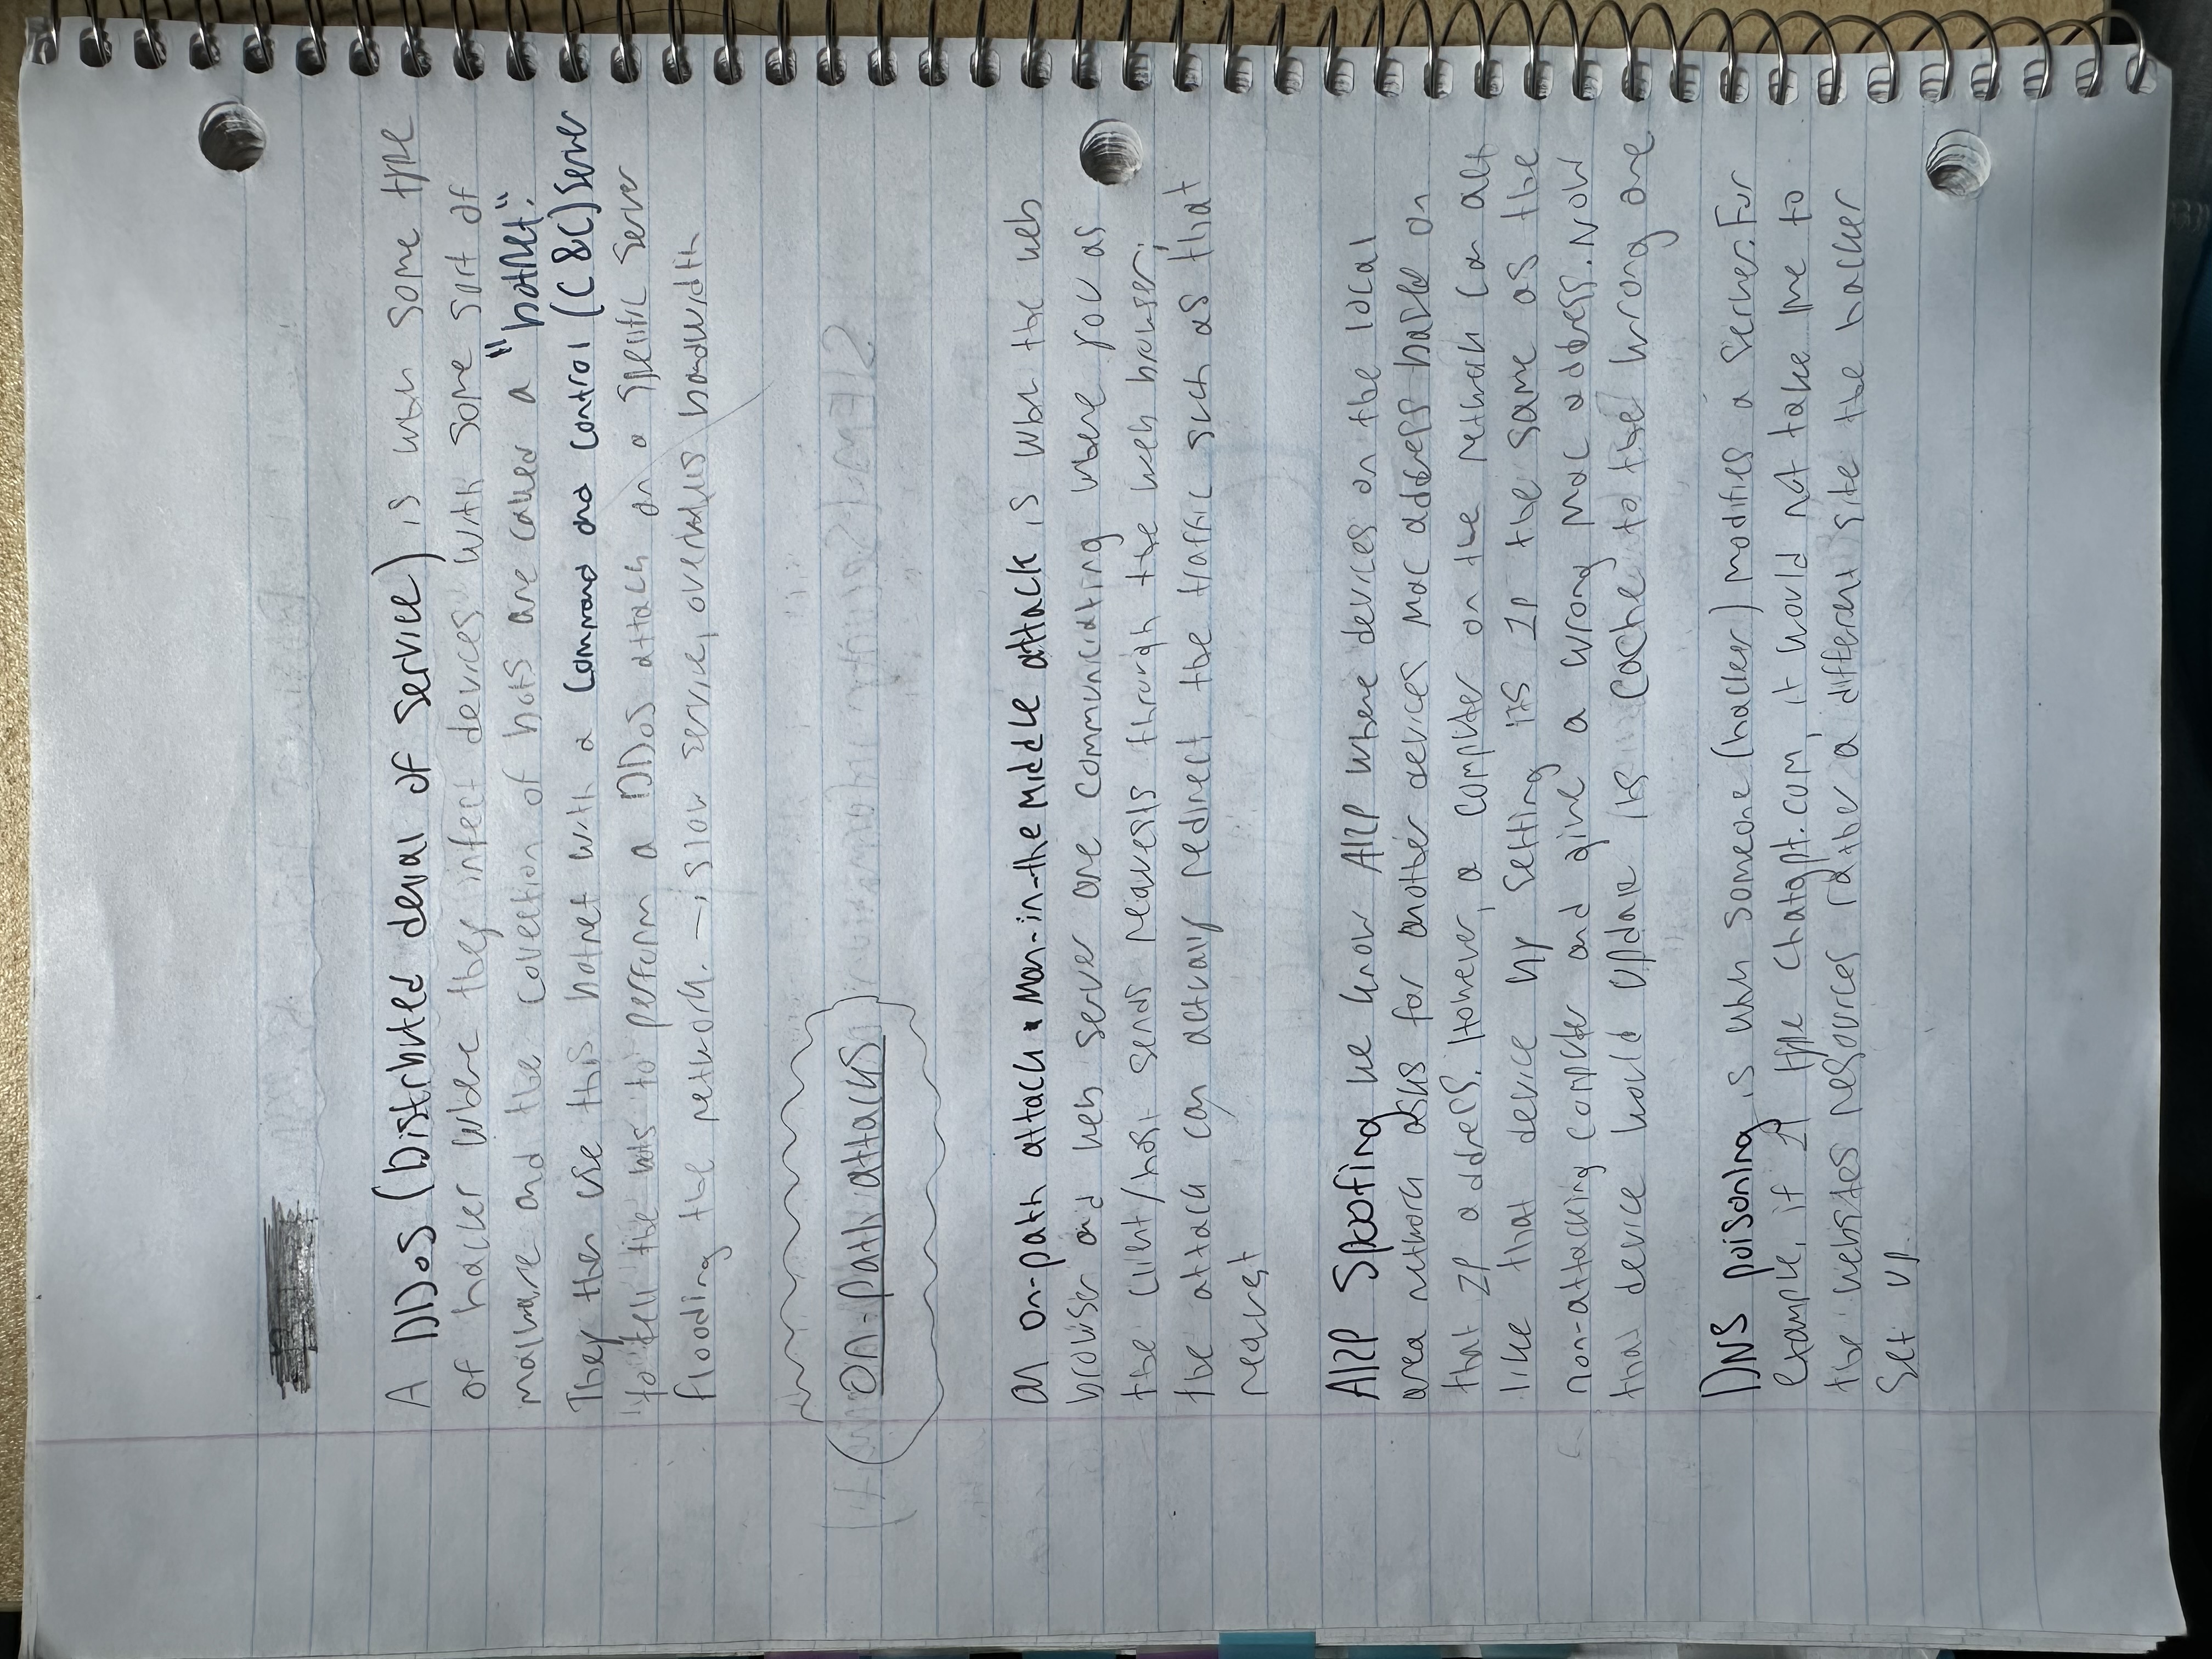 A DDoS (Distrbuted denal of service) is when some type
of hacker where they infect devices with some sort of
malware and the collection of bots are called a "botnet."
They then use this botnet with a Command and Control (C&C) Server
to tell the bots to perform a DDoS attack on a specific server
flooding the network. → slow service, bandwidth
On-path attacks
an on-path attack Man-in-the Middle attack is when the web
browser and web server are communicating where you as
the client/host sends requests through the web browser;
the attack can actually redirect the traffic such as that
request
ARP Spoofing we know ARP where devices on the local
area network asks for another devices Mac address based on
that IP address. However, a computer on the network can act
like that device by setting its IP the same as the
non-attacking computer and give a wrong Mac address. Now
that device would update its cache to the wrong one
DNS poisoning is when someone (hacker) modifies a server. For
example, if I type Chatgpt.com, it would not take me to
the websites resources rather a different site the hacker
set up.
SIEM (Security information